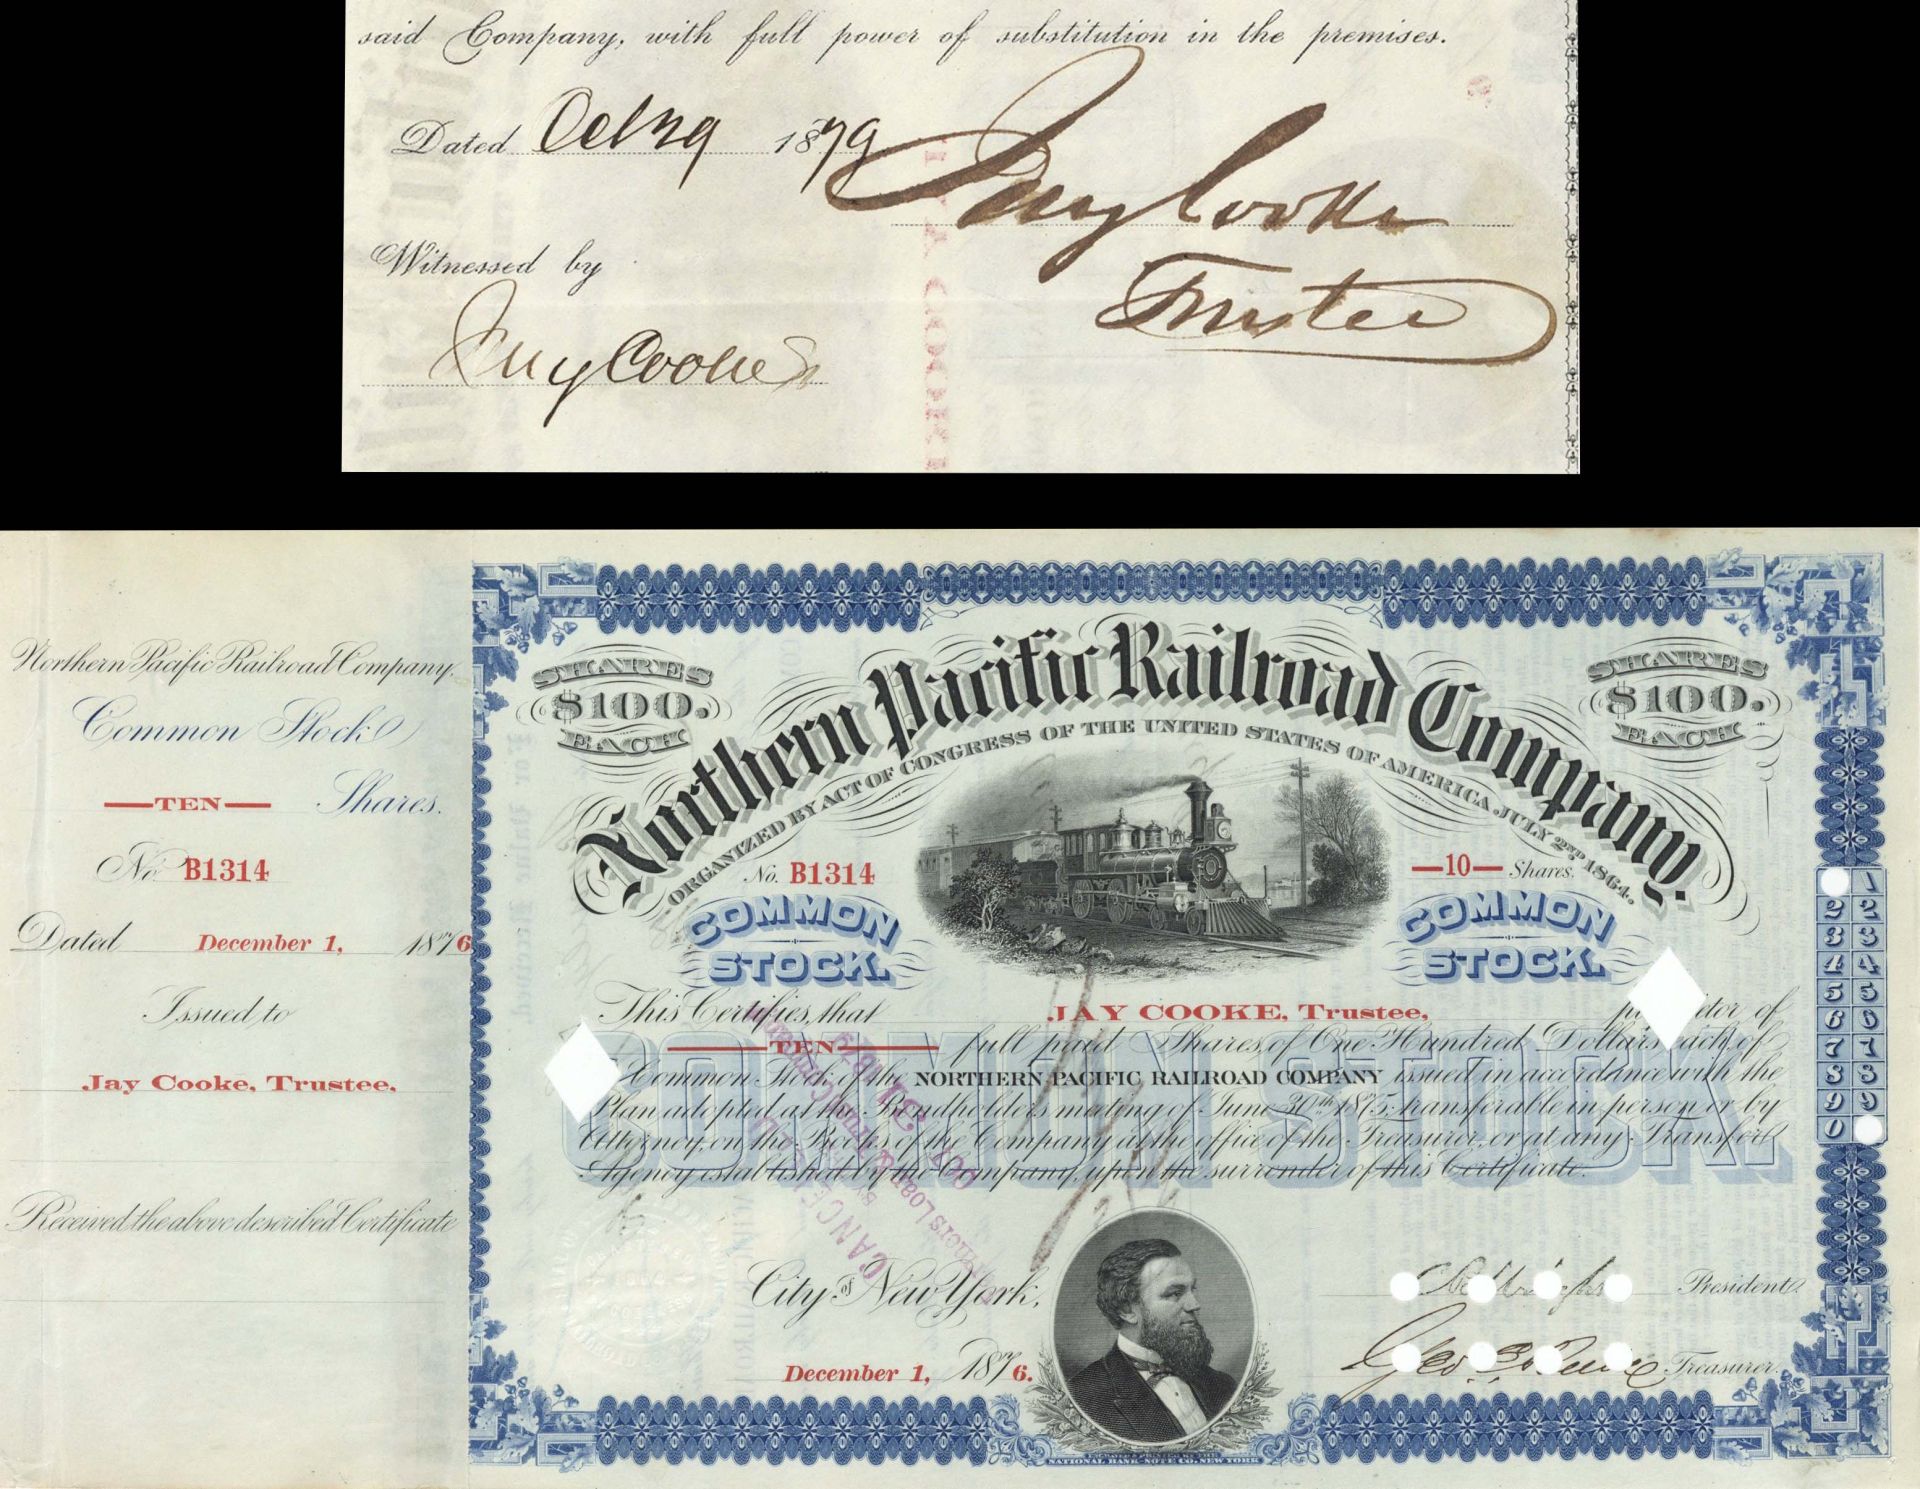 said Company, with full power of substitution in the premises.
Dated Oct 29 1879
Jay Cooke
Trustee
Witnessed by
Jay Cooke Jr
Northern Pacific Railroad Company.
Common Stock
TEN Shares.
No. B1314
Dated December 1, 1876
Issued to
Jay Cooke, Trustee,
Received the above described Certificate
SHARES $100. EACH
Northern Pacific Railroad Company.
SHARES $100. EACH
ORGANIZED BY ACT OF CONGRESS OF THE UNITED STATES OF AMERICA, JULY 2ND 1864.
No. B1314
—10— Shares.
COMMON STOCK.
COMMON STOCK.
This Certifies, that JAY COOKE, Trustee, proprietor of
TEN full paid Shares, of One Hundred Dollars each, of
Common Stock of the NORTHERN PACIFIC RAILROAD COMPANY issued in accordance with the
Plan adopted at the Bondholders meeting of June 30th 1875; transferable in person or by
Attorney, on the Books of the Company at the office of the Treasurer, or at any Transfer
Agency established by the Company, upon the surrender of this Certificate.
COMMON STOCK.
CANCELLED
BY
Farmers Loan & Trust Company
OCT 31 1879
City of New York,
December 1, 1876.
President.
Geo. Treasurer.
NATIONAL BANK-NOTE CO. NEW YORK
1
2 2
3 3
4 4
5 5
6 6
7 7
8 8
9 9
0